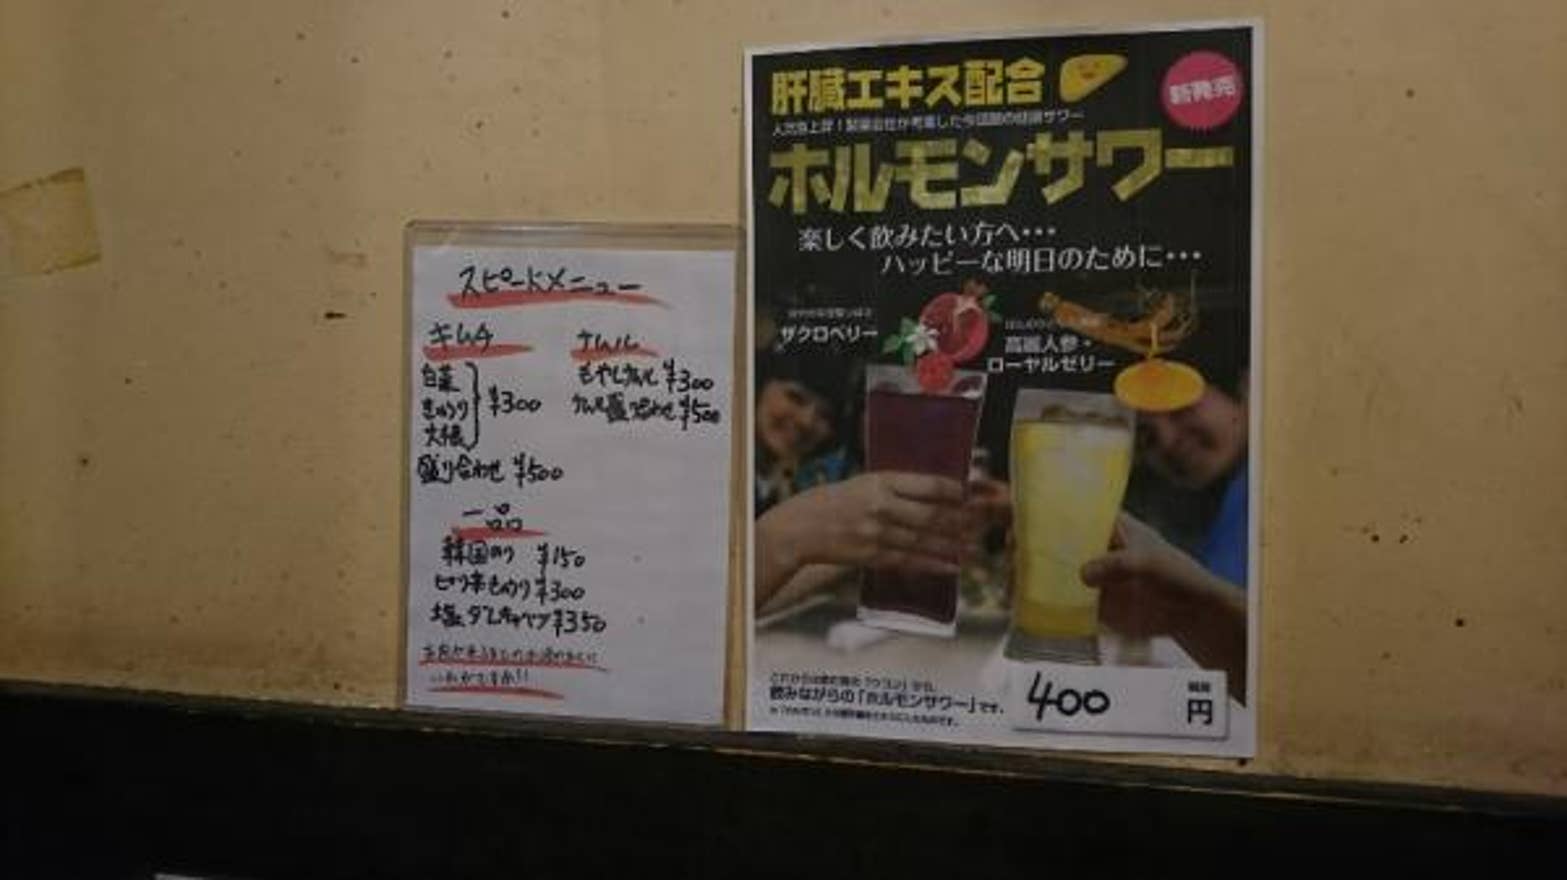 スピードメニュー
キムチ
白菜
きゅうり
大根
¥300
盛り合わせ ¥500
ナムル
もやしナムル ¥300
ナムル盛り合わせ ¥500
一品
韓国のり ¥150
ピリ辛きゅうり ¥300
塩ダレキャベツ ¥350
肝臓エキス配合
新発売
人気急上昇!製薬会社が考案した今話題の健康サワー
ホルモンサワー
楽しく飲みたい方へ・・・
ハッピーな明日のために・・・
ザクロベリー
高麗人参・
ローヤルゼリー
飲みながらの「ホルモンサワー」です。
400 円